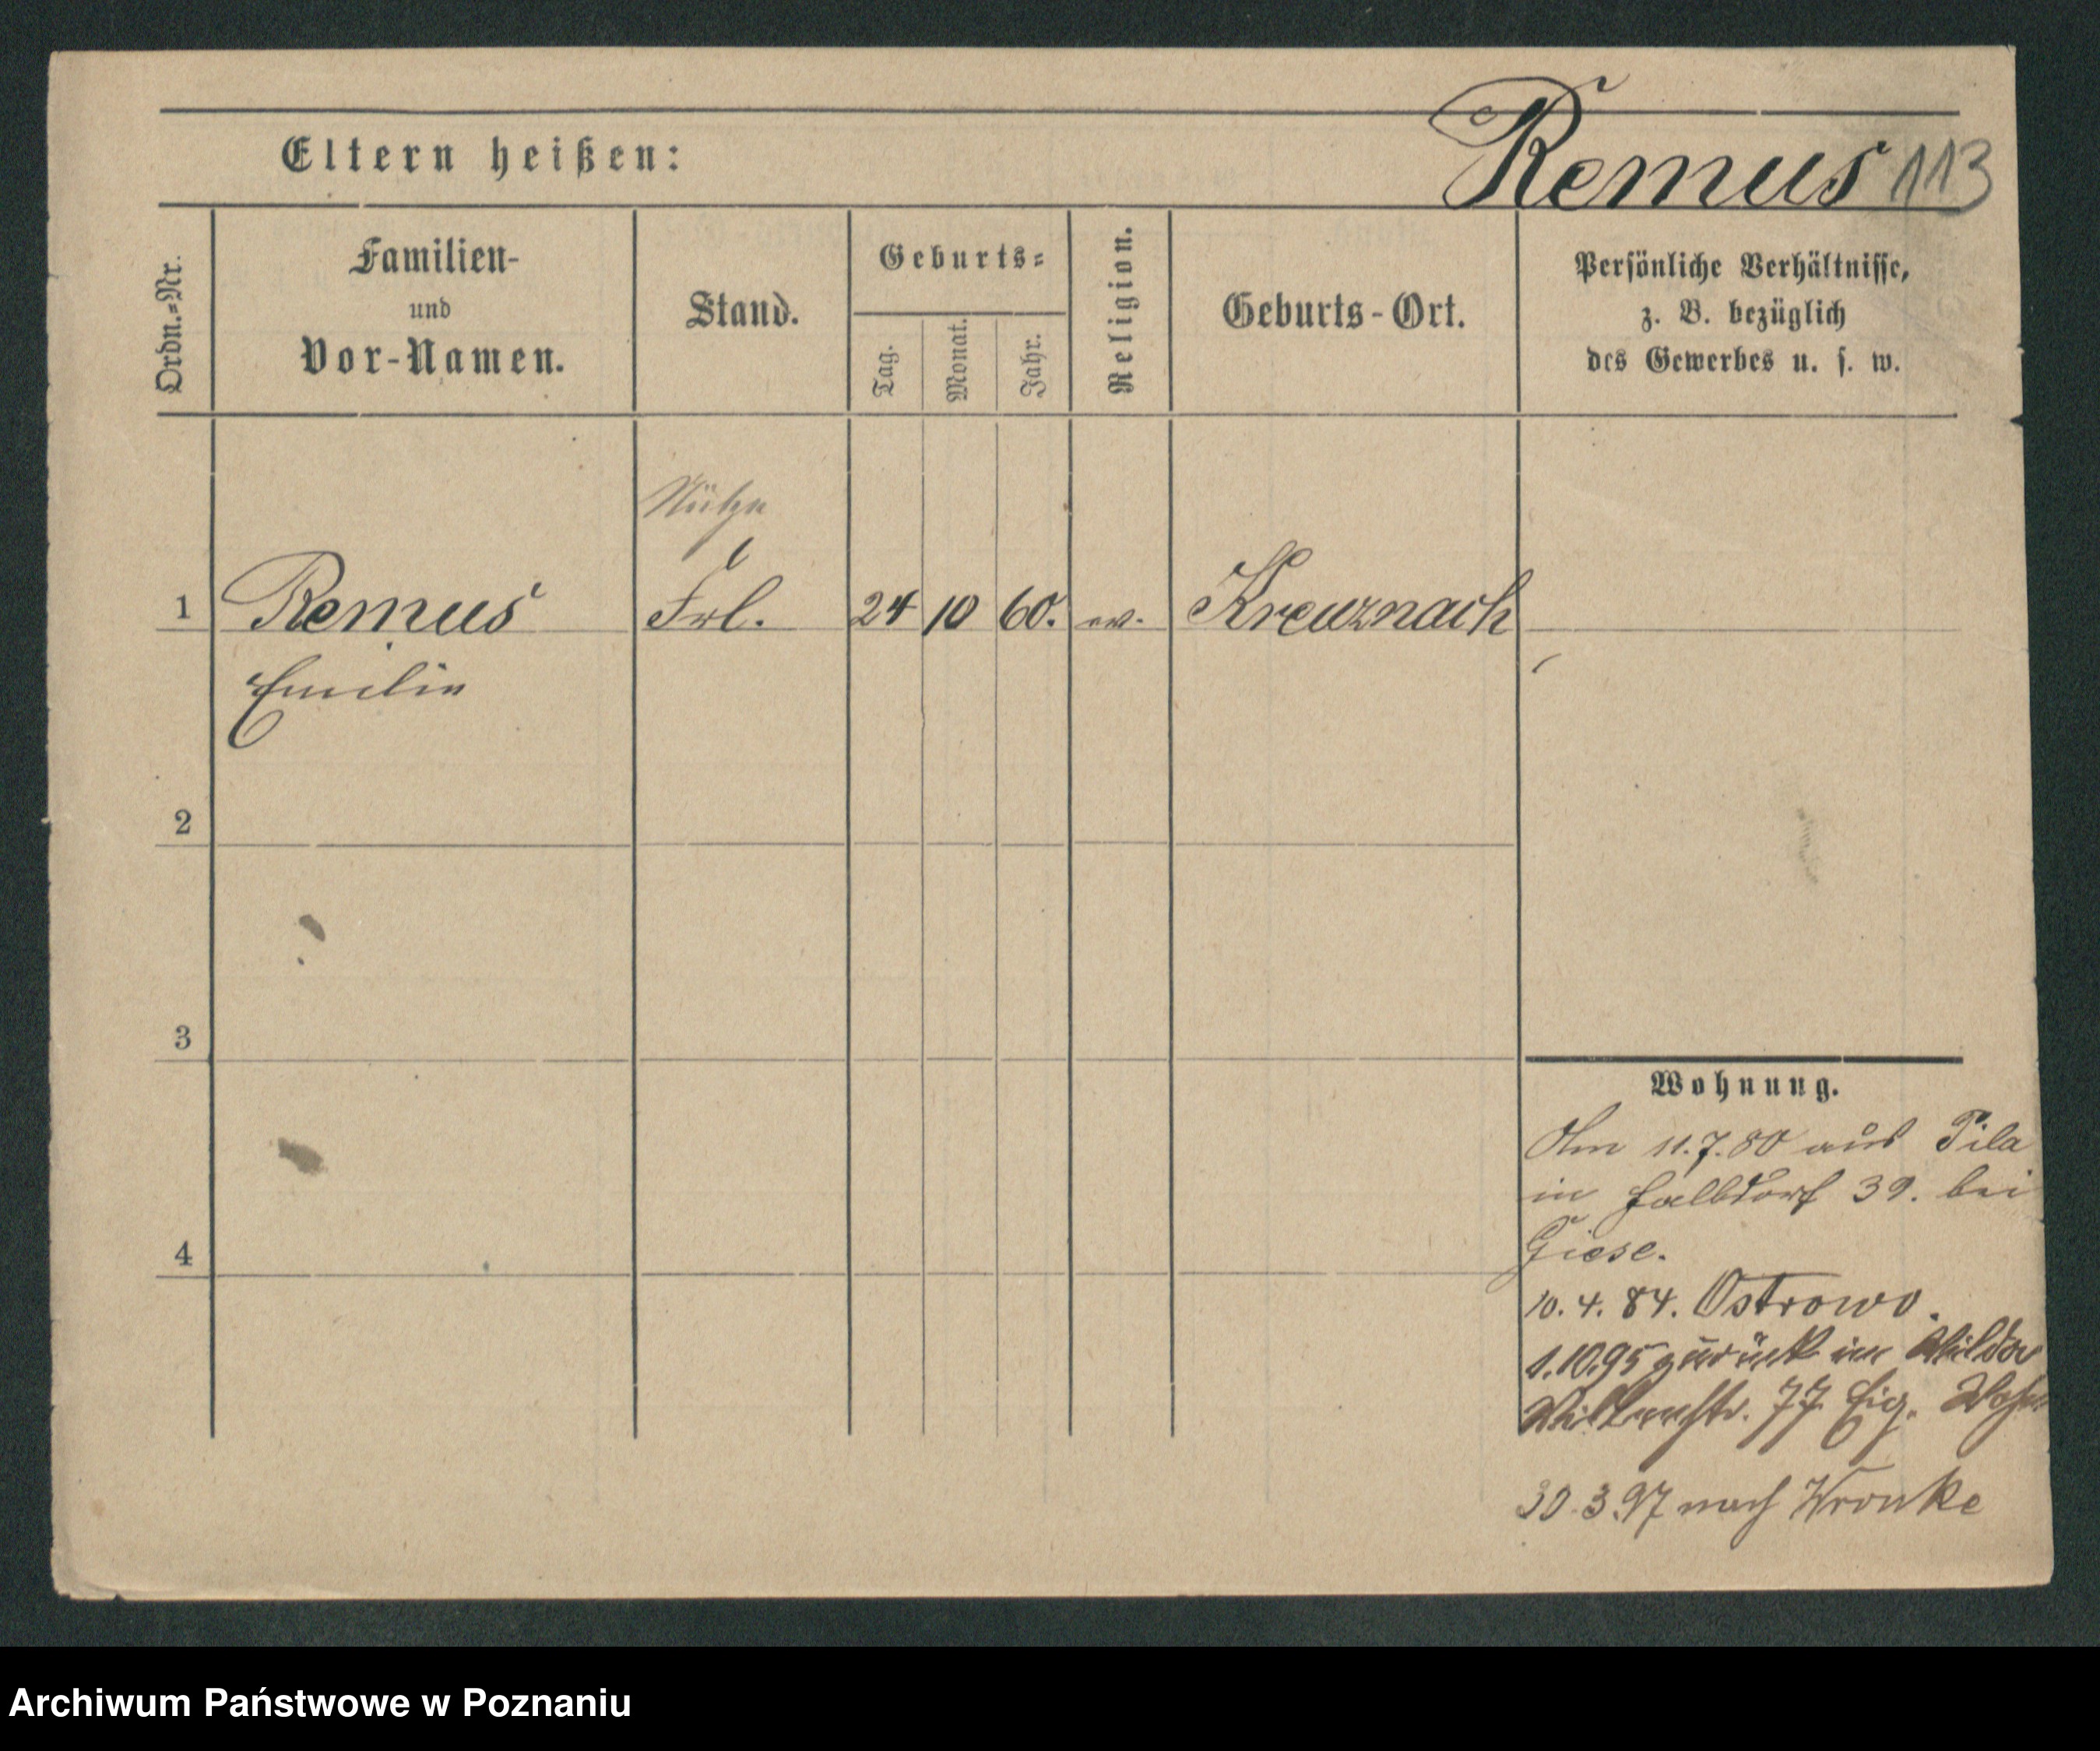 Remus 113
Eltern heißen:
Ordn.=Nr.
Familien-
und
Vor-Namen.
Stand.
Geburts=
Tag.
Monat.
Jahr.
Religion.
Geburts-Ort.
Persönliche Verhältnisse,
z. B. bezüglich
des Gewerbes u. s. w.
1 Remus Frl. 24 10 60. ev. Kreuznach
Emilie
2
3
4
Wohnung.
11.7.80 aus Pila
in 39. bei
Giese.
10. 4. 84. Ostrowo.
1.10.95 zurück in Wilda
77 Eig. Wohn
30.3.97 nach Wronke
Archiwum Państwowe w Poznaniu